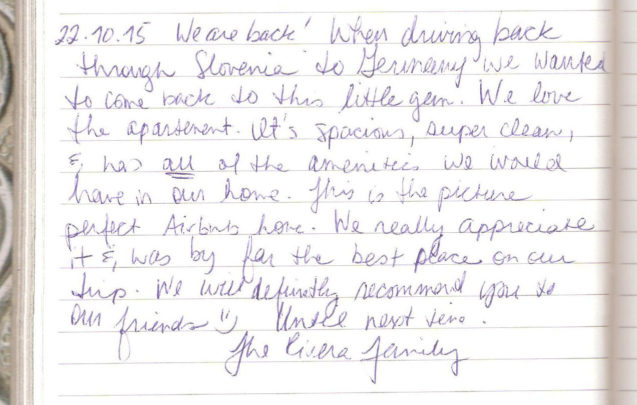 22.10.15 We are back! When driving back
through Slovenia to Germany we wanted
to come back to this little gem. We love
the apartement. It's spacious, super clean,
& has all of the amenities we would
have in our home. This is the picture
perfect Airbnb home. We really appreciate
it & was by far the best place on our
trip. We will definetly recommend you to
our friends :) Untle next time.
The Rivera Family